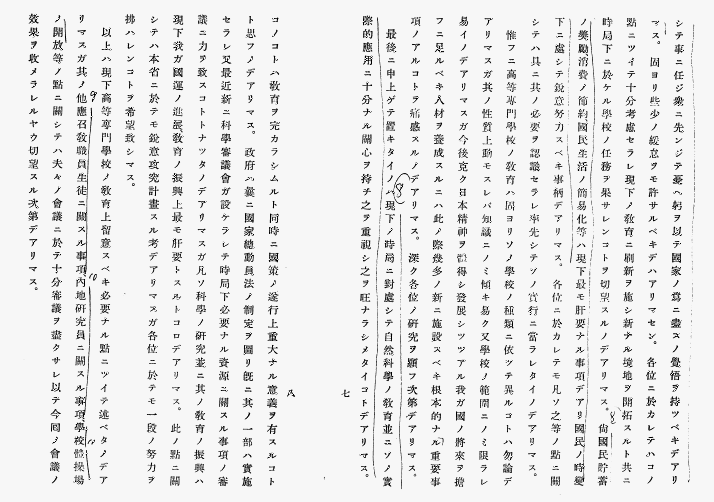 シテ事ニ任ジ衆ニ先ンジテ憂ヘ躬ヲ以テ國家ノ爲ニ盡スノ覺悟ヲ持ツベキデアリ
マス。固ヨリ些少ノ緩怠ヲモ許サルベキデハアリマセン。各位ニ於カレテハコノ
點ニツイテ十分考慮セラレ現下ノ教育ニ刷新ヲ施シ新ナル境地ヲ開拓スルト共ニ
時局下ニ於ケル學校ノ任務ヲ果サレンコトヲ切望スルノデアリマス。尙國民貯蓄
ノ奬勵消費ノ節約國民生活ノ簡易化等ハ現下最モ肝要ナル事項デアリ國民ノ時艱
下ニ處シテ銳意努力スベキ事柄デアリマス。各位ニ於カレテモ凡ソ之等ノ點ニ關
シテハ具ニ其ノ必要ヲ認識セラレ率先シテソノ實行ニ當ラレタイノデアリマス。
惟フニ高等專門學校ノ教育ハ固ヨリソノ學校ノ種類ニ依ツテ異ルコトハ勿論デ
アリマスガ其ノ性質上動モスレバ知識ニノミ傾キ易ク又學校ノ範圍ニノミ限ラレ
易イノデアリマスガ今後克ク日本精神ヲ體得シ發展シツツアル我ガ國ノ將來ヲ擔
フニ足ルベキ人材ヲ養成スルニハ此ノ際幾多ノ新ニ施設スベキ根本的ナル重要事
項ノアルコトヲ痛感スルノデアリマス。深ク各位ノ研究ヲ願フ次第デアリマス。
最後ニ申上ゲテ置キタイノハ現下ノ時局ニ對處シテ自然科學ノ教育並ニソノ實
際的應用ニ十分ナル關心ヲ持チ之ヲ重視シ之ヲ旺ナラシメタイコトデアリマス。
七
八
コノコトハ教育ヲ完カラシムルト同時ニ國策ノ遂行上重大ナル意義ヲ有スルコト
ト思フノデアリマス。政府ハ曩ニ國家總動員法ノ制定ヲ圖リ旣ニ其ノ一部ハ實施
セラレ又最近新ニ科學審議會ガ設ケラレテ時局下必要ナル資源ニ關スル事項ノ審
議ニ力ヲ致スコトトナツタノデアリマスガ凡ソ科學ノ研究並ニ其ノ教育ノ振興ハ
現下我ガ國運ノ進展教育ノ振興上最モ肝要トスルトコロデアリマス。此ノ點ニ關
シテハ本省ニ於テモ銳意攻究計畫スル考デアリマスガ各位ニ於テモ一段ノ努力ヲ
拂ハレンコトヲ希望致シマス。
以上ハ現下高等專門學校ノ教育上留意スベキ必要ナル點ニツイテ述ベタノデア
リマスガ其ノ他應召教職員生徒ニ關スル事項內地研究員ニ關スル事項學校體操場
ノ開放等ノ點ニ關シテハ夫々ノ會議ニ於テ十分審議ヲ盡クサレ以テ今囘ノ會議ノ
效果ヲ收メラレルヤウ切望スル次第デアリマス。